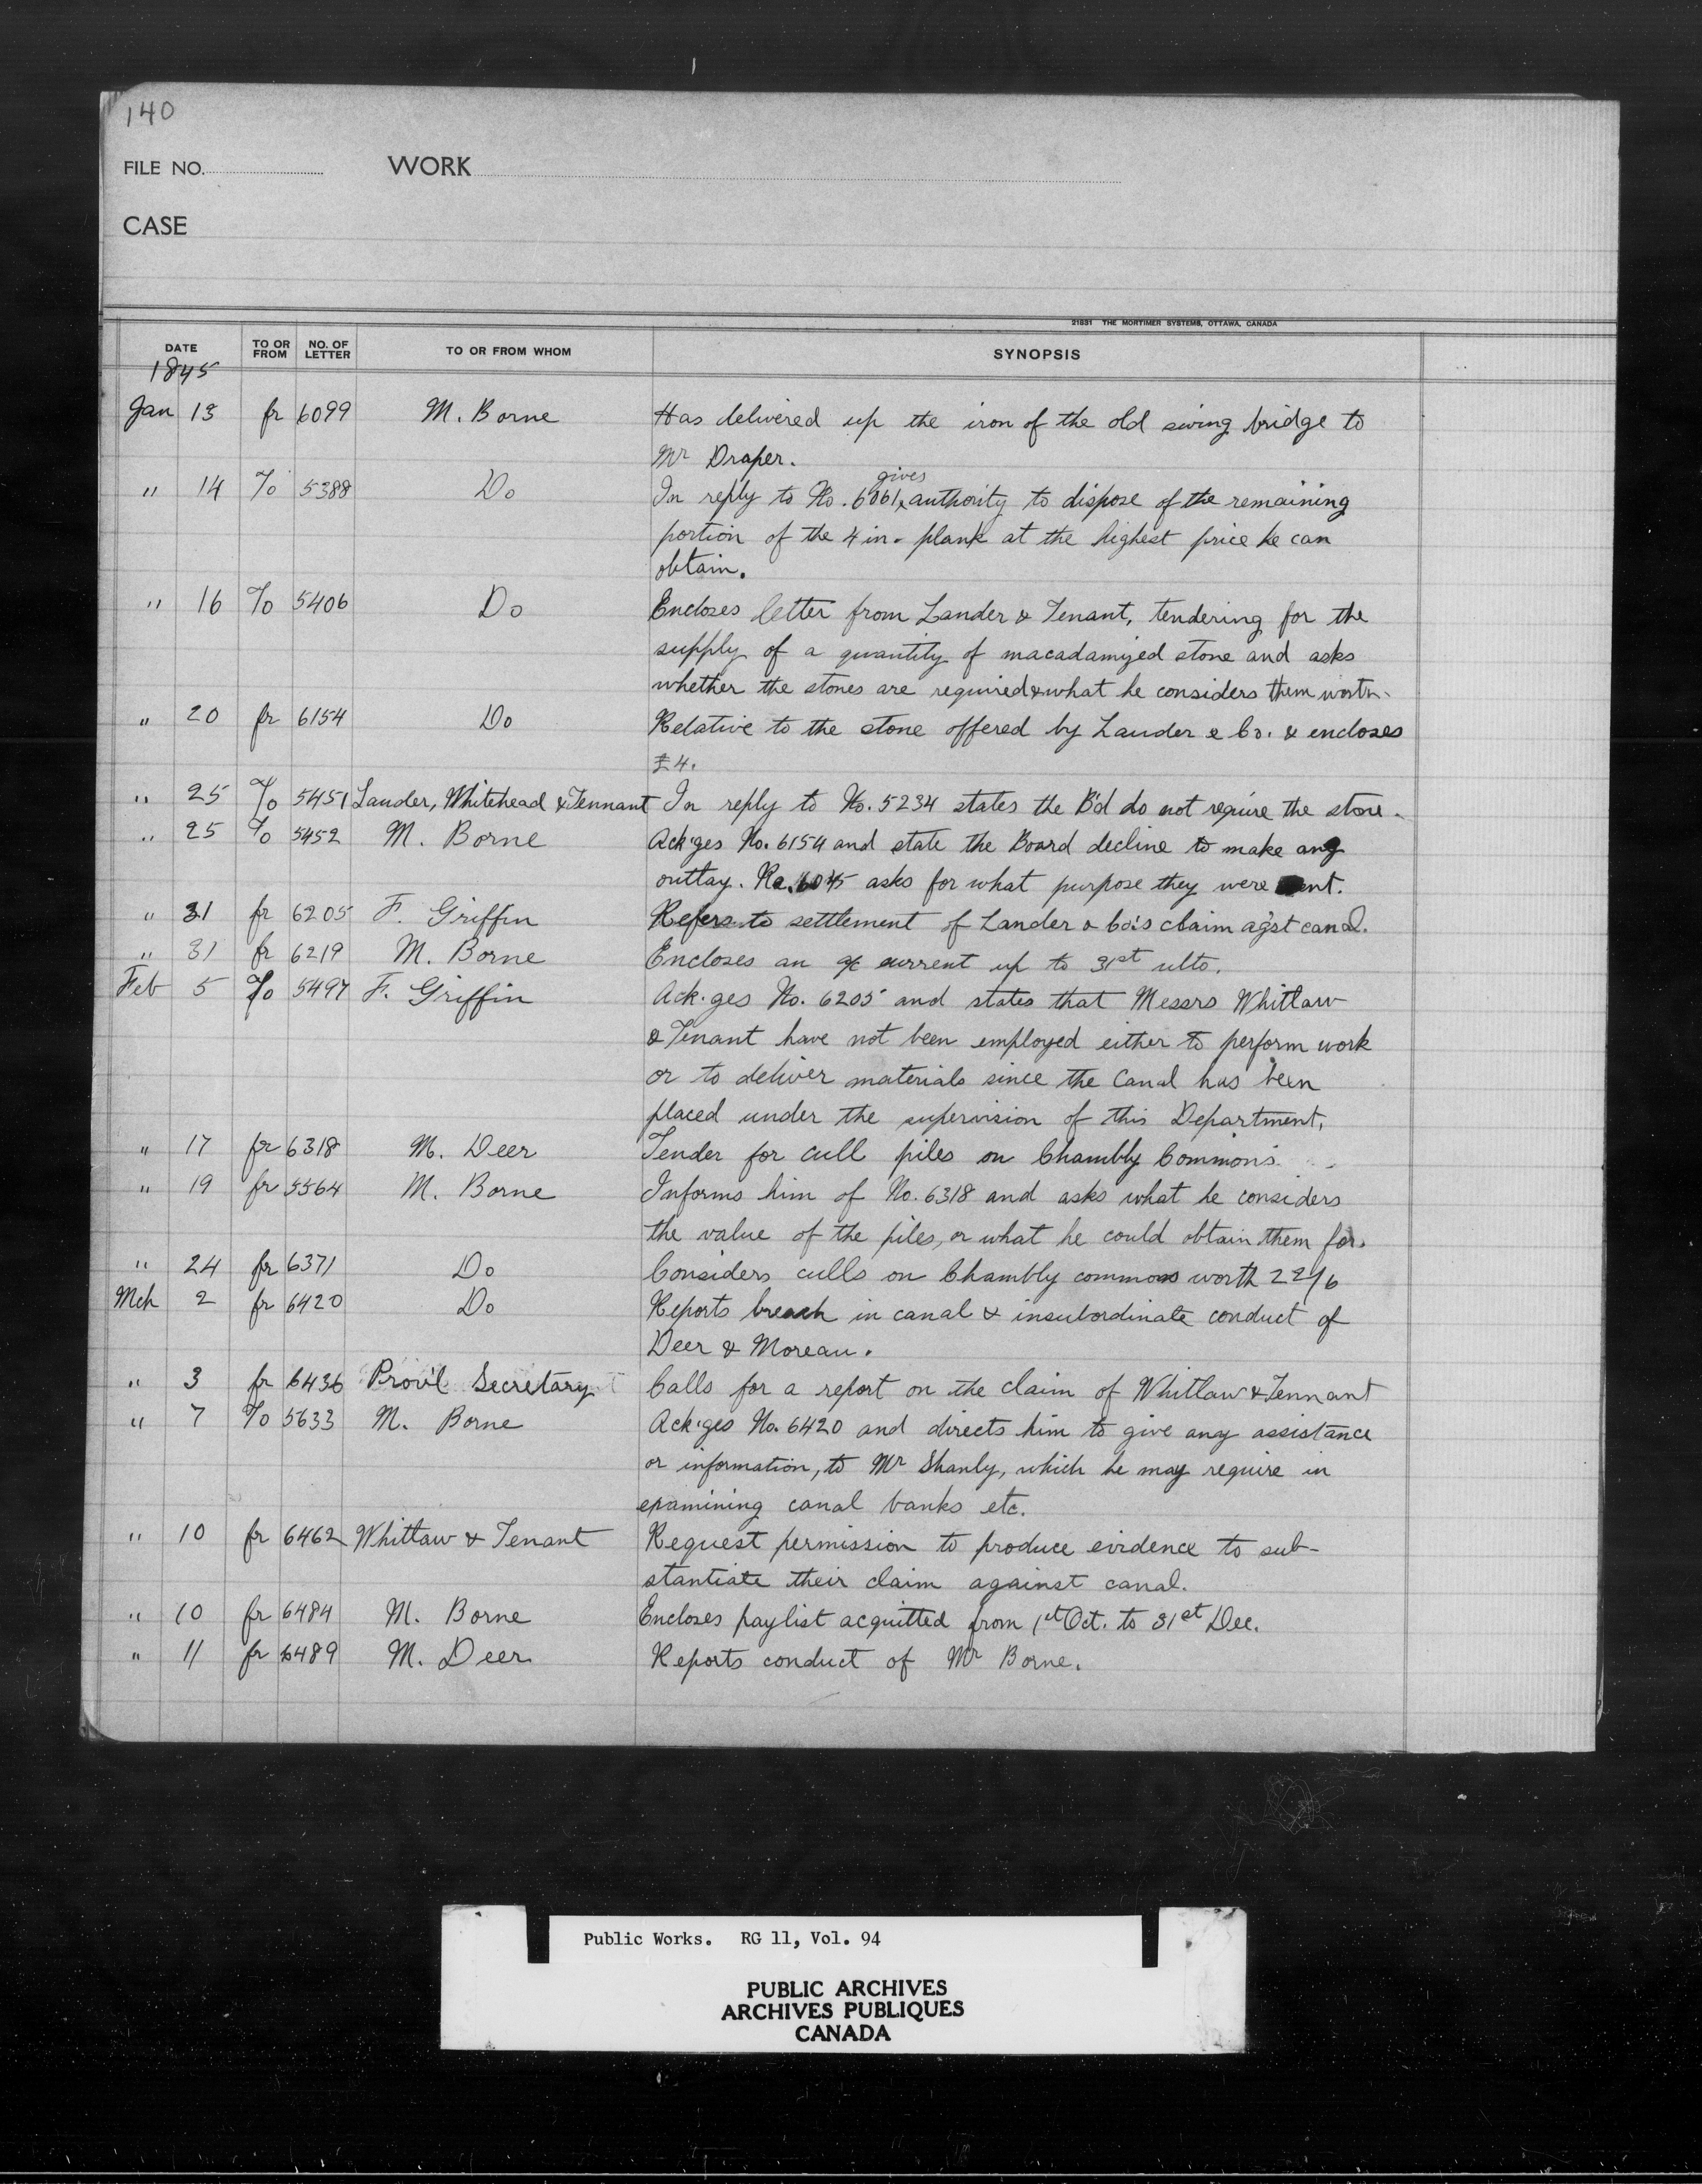 140
FILE NO. WORK
CASE
21831 THE MORTIMER SYSTEMS, OTTAWA, CANADA
DATE TO OR FROM NO. OF LETTER TO OR FROM WHOM SYNOPSIS
1845
Jan 13 fr 6099 M. Borne Has delivered up the iron of the old swing bridge to
Mr Draper.
gives
" 14 To 5388 Do In reply to No. 6061, authority to dispose of the remaining
portion of the 4 in. plank at the highest price he can
obtain.
" 16 To 5406 Do Encloses letter from Lander & Tenant, tendering for the
supply of a quantity of macadamized stone and asks
whether the stones are required & what he considers them worth.
" 20 fr 6154 Do Relative to the stone offered by Lauder & Co. & encloses
£4.
" 25 To 5451 Lauder, Whitehead & Tennant In reply to No. 5234 states the B'd do not require the stone.
" 25 To 5452 M. Borne Ack'ges No. 6154 and state the Board decline to make any
outlay. Re. 6045 asks for what purpose they were sent.
" 31 fr 6205 F. Griffin Refers to settlement of Lander & Co's claim ag'st canal.
" 31 fr 6219 M. Borne Encloses an a/c current up to 31st ulto.
Feb 5 To 5497 F. Griffin Ack.ges No. 6205 and states that Messrs Whitlaw
& Tenant have not been employed either to perform work
or to deliver materials since the Canal has been
placed under the supervision of this Department.
" 17 fr 6318 M. Deer Tender for cull piles on Chambly Commons.
" 19 fr 5564 M. Borne Informs him of No. 6318 and asks what he considers
the value of the piles, or what he could obtain them for.
" 24 fr 6371 Do Considers culls on Chambly commons worth 22/6
Mch 2 fr 6420 Do Reports breach in canal & insubordinate conduct of
Deer & Moreau.
" 3 fr 6436 Provi'l Secretary Calls for a report on the claim of Whitlaw & Tennant
" 7 To 5633 M. Borne Ack'ges No. 6420 and directs him to give any assistance
or information, to Mr Shanly, which he may require in
examining canal banks etc.
" 10 fr 6462 Whitlaw & Tenant Request permission to produce evidence to sub-
stantiate their claim against canal.
" 10 fr 6484 M. Borne Encloses paylist acquitted from 1st Oct. to 31st Dec.
" 11 fr 6489 M. Deer Reports conduct of Mr Borne.
Public Works. RG 11, Vol. 94
PUBLIC ARCHIVES
ARCHIVES PUBLIQUES
CANADA